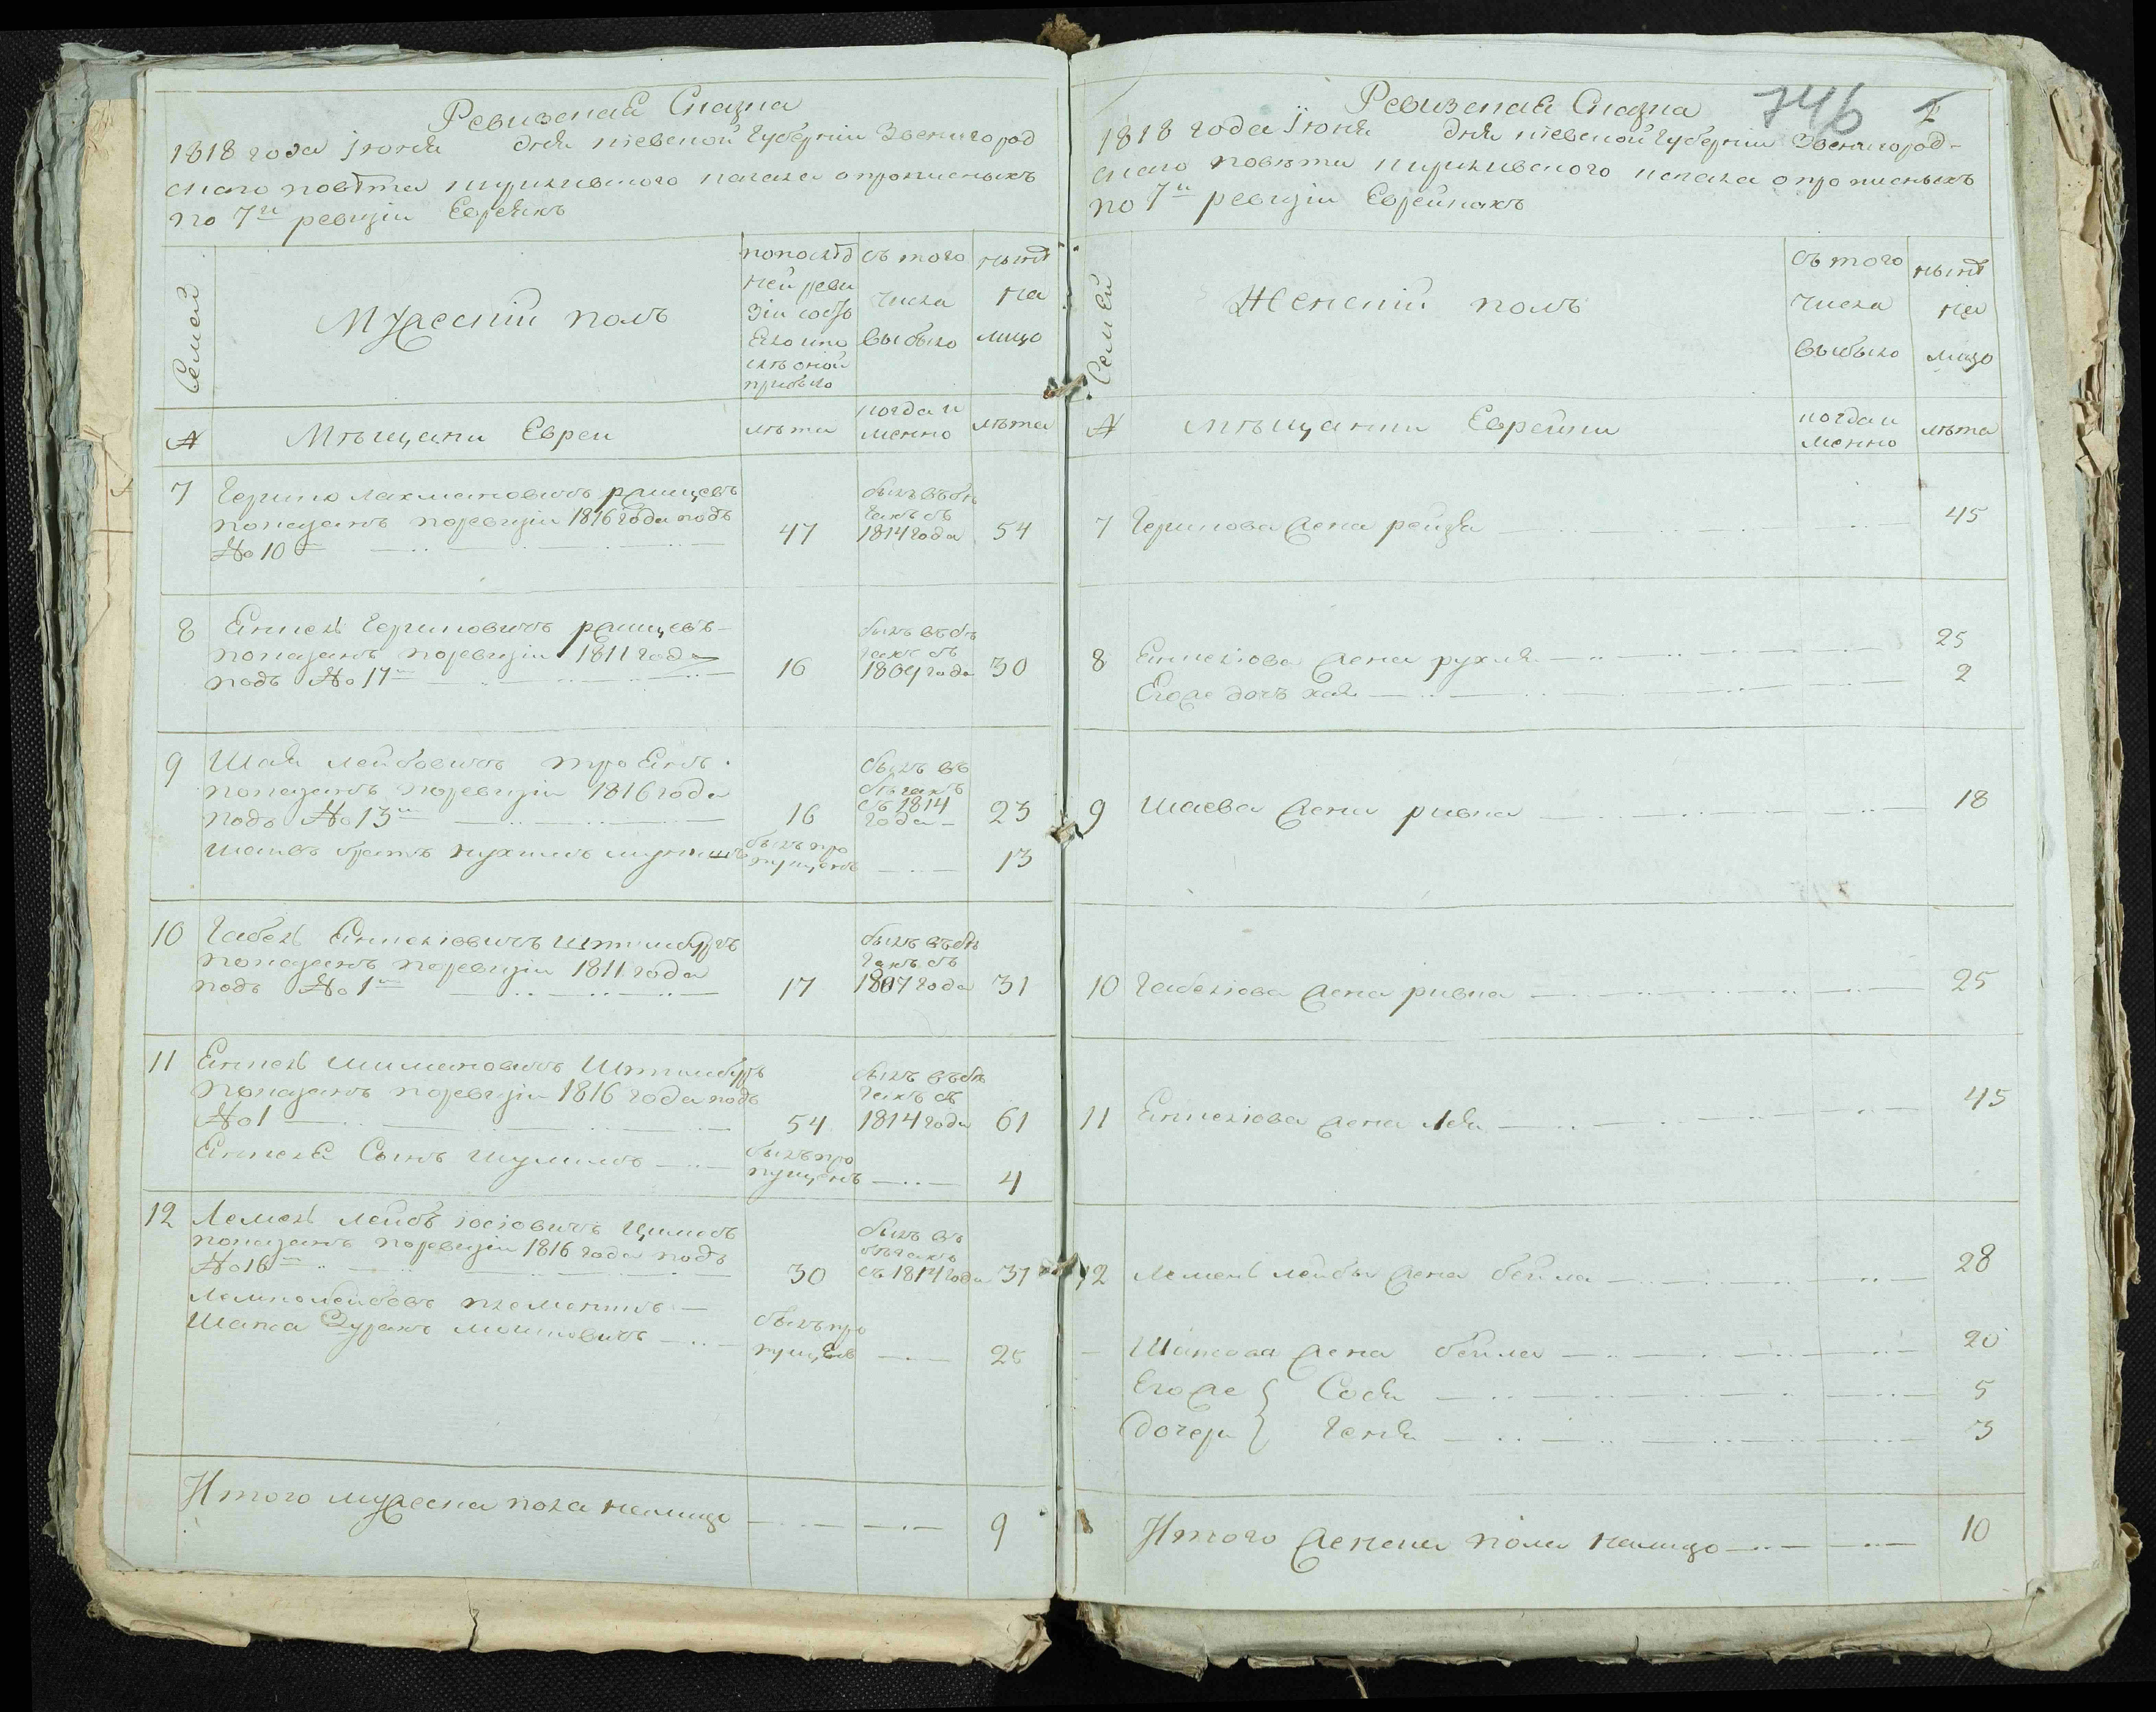 Ревизская Сказка
1818 года Іюня дня Кіевской Губерніи Звенигород
скаго повѣта шуликивского кагала о прописныхъ
по 7й ревизіи Евреяхъ
Семей
Мужескій полъ
по послѣд
ней реви
зіи состо
яло и по
слѣ оной
прибыло
съ того
числа
выбыло
нынѣ
на
лицо
№
Мѣщани Евреи
лѣта
когда и
менно
лѣта
7 Гершко лахмановичъ
показанъ поревизіи 1816 года подъ
№ 10м
47
былъ въбѣ
гахъ съ
1814 года
54
8 Янкель Гершковичъ
показанъ поревизіи 1811 года
подъ № 17м
16
былъ въбѣ
гахъ съ
30
9 Шая лейбовичъ
показанъ поревизіи 1816 года
подъ № 13м
16
былъ въ
бѣгахъ
съ 1814
года
23
Шаивъ братъ нухимъ
былъ про
пущенъ
13
10 Габель Янкеліовичъ
показанъ поревизіи 1811 года
подъ № 1м
17
былъ въбѣ
гахъ съ
1807 года
31
11 Янкель шимановичъ
показанъ поревизіи 1816 года подъ
№ 1
54
былъ въбѣ
гахъ съ
1814 года
61
Янкеля Сынъ шулимъ
былъ про
пущенъ
4
12 Лемель лейбъ іосіовичъ
показанъ поревизіи 1816 года подъ
№ 16м
30
былъ въ
бѣгахъ
съ 1814 года
37
племянникъ
Шапса мошковичъ
былъ про
пущенъ
25
Итого мужеска пола налицо
9
Ревизская Сказка
746
1818 года Іюня дня Кіевской Губерніи Звенигород-
скаго повѣта шуликивского кагала о прописныхъ
по 7й ревизіи Еврейкахъ
Семей
Женскій полъ
съ того
числа
выбыло
нынѣ
на
лицо
№
мѣщанки Еврейки
когда и
менно
лѣта
7 Гершкова жена рейзя
45
8 Янкеліова жена рухля
25
Егоже дочъ хая
2
9 Шаева жена ривка
18
10 Габеліова жена ривка
25
11 Янкеліова жена лея
45
12 Лемель лейбы жена бейла
28
Шапсова жена бейла
20
Егоже { Сося
5
Дочери } Геня
3
Итого женска пола налицо
10